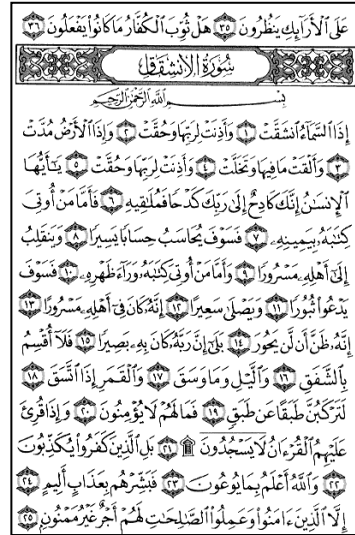 عَلَى ٱلْأَرَآئِكِ يَنظُرُونَ ٣٥ هَلْ ثُوِّبَ ٱلْكُفَّارُ مَا كَانُوا۟ يَفْعَلُونَ ٣٦
سُورَةُ الانْشِقَاقِ
بِسْمِ ٱللَّهِ ٱلرَّحْمَٰنِ ٱلرَّحِيمِ
إِذَا ٱلسَّمَآءُ ٱنشَقَّتْ ١ وَأَذِنَتْ لِرَبِّهَا وَحُقَّتْ ٢ وَإِذَا ٱلْأَرْضُ مُدَّتْ
٣ وَأَلْقَتْ مَا فِيهَا وَتَخَلَّتْ ٤ وَأَذِنَتْ لِرَبِّهَا وَحُقَّتْ ٥ يَٰٓأَيُّهَا
ٱلْإِنسَٰنُ إِنَّكَ كَادِحٌ إِلَىٰ رَبِّكَ كَدْحًا فَمُلَٰقِيهِ ٦ فَأَمَّا مَنْ أُوتِىَ
كِتَٰبَهُۥ بِيَمِينِهِۦ ٧ فَسَوْفَ يُحَاسَبُ حِسَابًا يَسِيرًا ٨ وَيَنقَلِبُ
إِلَىٰٓ أَهْلِهِۦ مَسْرُورًا ٩ وَأَمَّا مَنْ أُوتِىَ كِتَٰبَهُۥ وَرَآءَ ظَهْرِهِۦ ١٠ فَسَوْفَ
يَدْعُوا۟ ثُبُورًا ١١ وَيَصْلَىٰ سَعِيرًا ١٢ إِنَّهُۥ كَانَ فِىٓ أَهْلِهِۦ مَسْرُورًا ١٣
إِنَّهُۥ ظَنَّ أَن لَّن يَحُورَ ١٤ بَلَىٰٓ إِنَّ رَبَّهُۥ كَانَ بِهِۦ بَصِيرًا ١٥ فَلَآ أُقْسِمُ
بِٱلشَّفَقِ ١٦ وَٱلَّيْلِ وَمَا وَسَقَ ١٧ وَٱلْقَمَرِ إِذَا ٱتَّسَقَ ١٨
لَتَرْكَبُنَّ طَبَقًا عَن طَبَقٍ ١٩ فَمَا لَهُمْ لَا يُؤْمِنُونَ ٢٠ وَإِذَا قُرِئَ
عَلَيْهِمُ ٱلْقُرْءَانُ لَا يَسْجُدُونَ ۩ ٢١ بَلِ ٱلَّذِينَ كَفَرُوا۟ يُكَذِّبُونَ
٢٢ وَٱللَّهُ أَعْلَمُ بِمَا يُوعُونَ ٢٣ فَبَشِّرْهُم بِعَذَابٍ أَلِيمٍ ٢٤
إِلَّا ٱلَّذِينَ ءَامَنُوا۟ وَعَمِلُوا۟ ٱلصَّٰلِحَٰتِ لَهُمْ أَجْرٌ غَيْرُ مَمْنُونٍۭ ٢٥